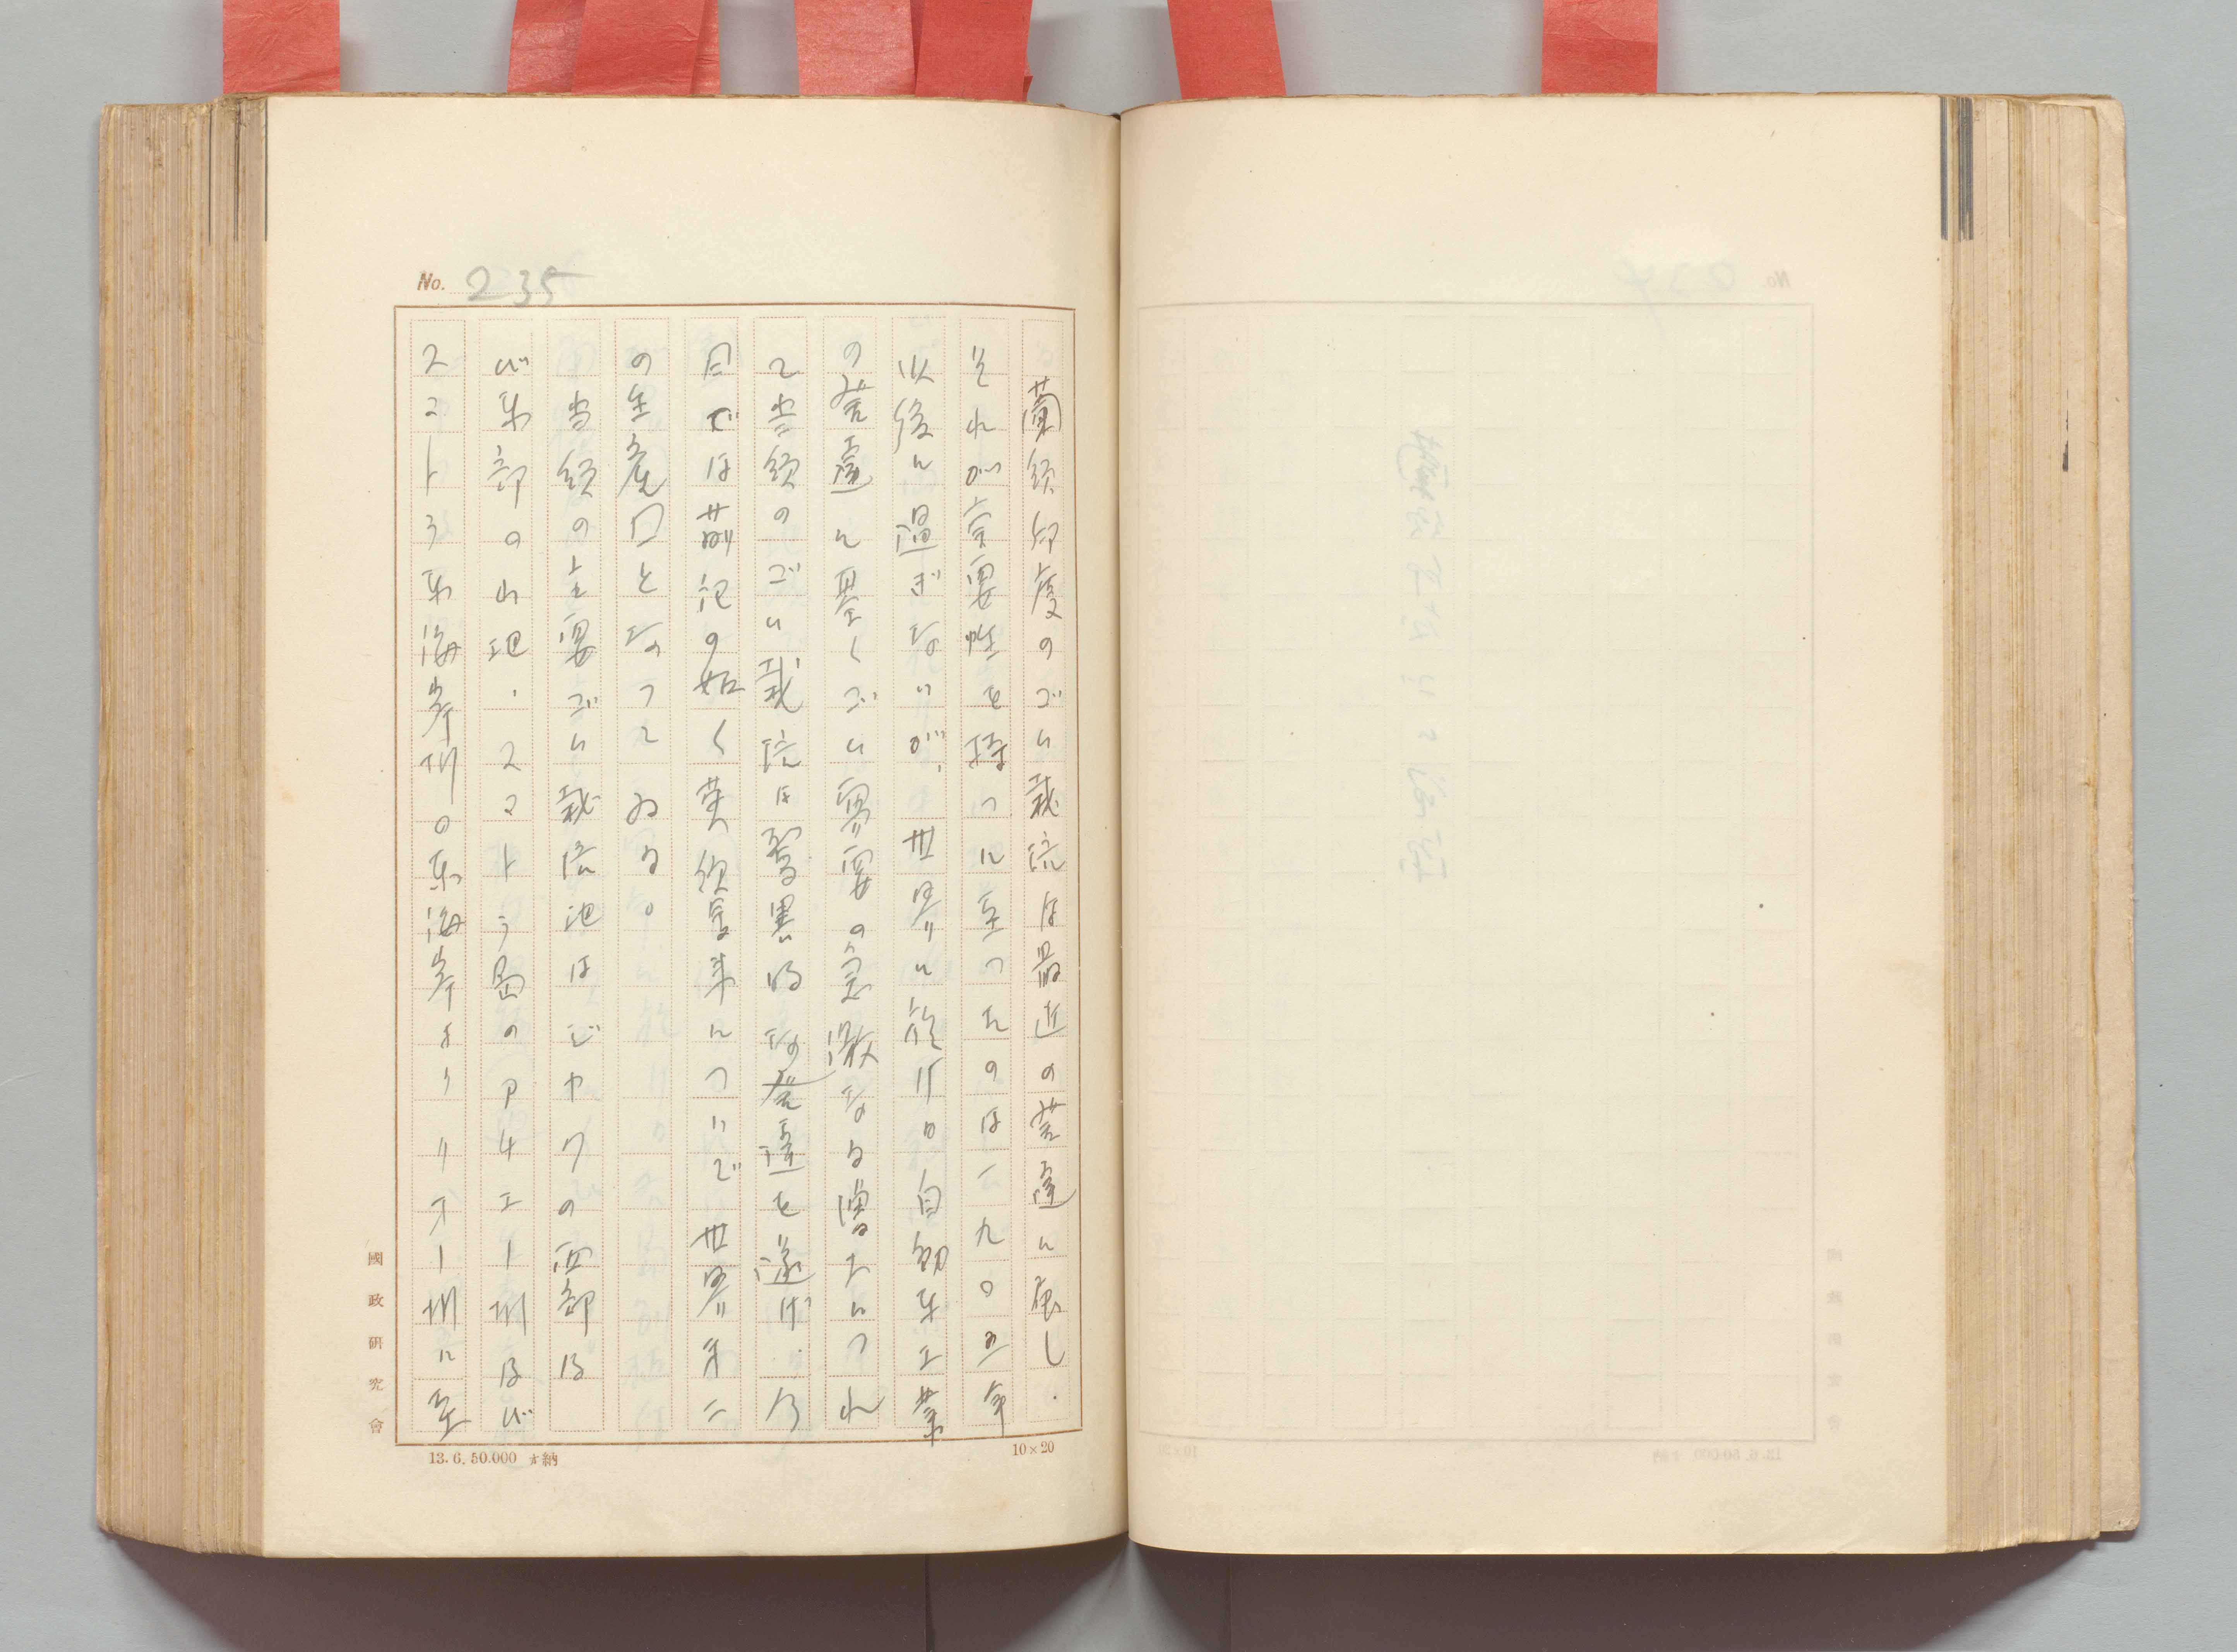 No. 235
蘭領印度のゴム栽培は最近の発達に属し、
それが重要性を持つに至つたのは一九〇五年
以後に過ぎないが、世界に於ける自動車工業
の発達に基くゴム需要の急激なる増大につれ
て当領のゴム栽培は驚異的な発達を遂げ、今
日では前記の如く英領馬来についで世界第二
の生産国となつてゐる。
当領の主要ゴム栽培地はジヤワの西部及
び東部の山地、スマトラ島のアチエー州及び
スマトラ東海岸州の東海岸よりリオー州に至
國政研究會
13. 6. 50.000 ヰ納
10×20